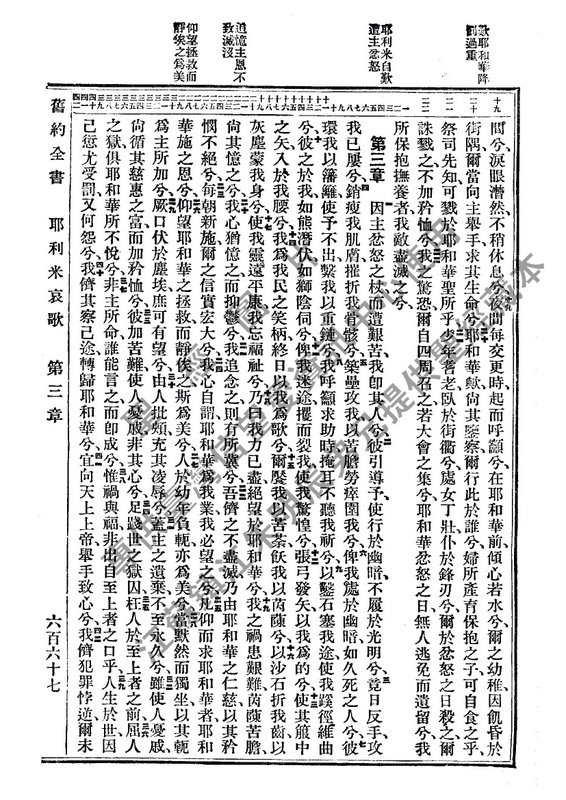 歎耶和華降
罰過重
耶利米自歎
遭主忿怒
追憶主恩不
致滅沒
仰望拯救而
靜俟之爲美
間兮淚眼潸然不稍休息兮夜間每交更時起而呼籲兮在耶和華前傾心若水兮爾之幼稚因飢昏於
街隅爾當向主舉手求其生命兮耶和華歟尚其鑒察爾行此於誰兮婦所產育保抱之子可自食之乎
祭司先知可戮於耶和華聖所乎少耆老臥於街衢兮處女丁壯仆於鋒刃兮於忿怒之日殺之爾
誅戮之不加矜恤兮我之驚恐爾自四周召之若大會之集兮耶和華忿怒之日無人逃免而遺留兮我
所保抱撫養者我敵盡滅之兮
第三章 因主忿怒之杖而遭艱苦我卽其人兮彼引導予使行於幽暗不履於光明兮竟日反手攻
我已屢兮銷瘦我肌膚摧折我骨骸兮築壘攻我以苦膽勞瘁圍我兮俾我處於幽暗如久死之人兮彼
環我以籬使予不出繫我以重鏈兮我呼籲求助時掩耳不聽我祈兮以鑿石塞我途使我蹊徑維曲
兮彼之於我如熊潛伏如獅陰伺兮俾我迷途攫而裂我使我驚惶兮張弓發矢以我爲的兮使其箙中
之矢入於我腰兮我爲我民之笑柄終日以我爲歌兮爾饜我以苦荼飫我以茵蔯兮以沙石折我齒以
灰塵蒙我身兮使我靈遠平康我忘福祉兮乃曰我力已盡絕望於耶和華兮我之禍患艱難茵蔯苦膽
尚其憶之兮我心猶憶之而抑鬱兮我追念之則有所冀兮吾儕之不盡滅乃由耶和華之仁慈以其矜
憫不絕兮每朝新施爾之信實宏大兮我心自謂耶和華爲我業我必望之兮凡仰而求耶和華者耶和
華施之恩兮仰望耶和華之拯救而靜俟之斯爲美兮人於幼年負軛亦爲美兮當默然而獨坐以其軛
爲主所加兮厥口伏於塵埃庶可有望兮由人批頰充其凌辱兮蓋主之遺棄不至永久兮雖使人憂戚
尚循其慈惠之富而加矜恤兮彼加苦難使人憂戚非其心兮足踐世之獄囚枉人於至上者之前屈人
之獄俱耶和華所不悅兮非主所命誰能言之而卽成兮惟禍與福非出自至上者之口乎人生於世因
己愆尤受罰又何怨兮我儕其察己途轉歸耶和華兮宜向天上上帝舉手致心兮我儕犯罪悖逆爾未
舊約全書 耶利米哀歌 第三章 六百六十七